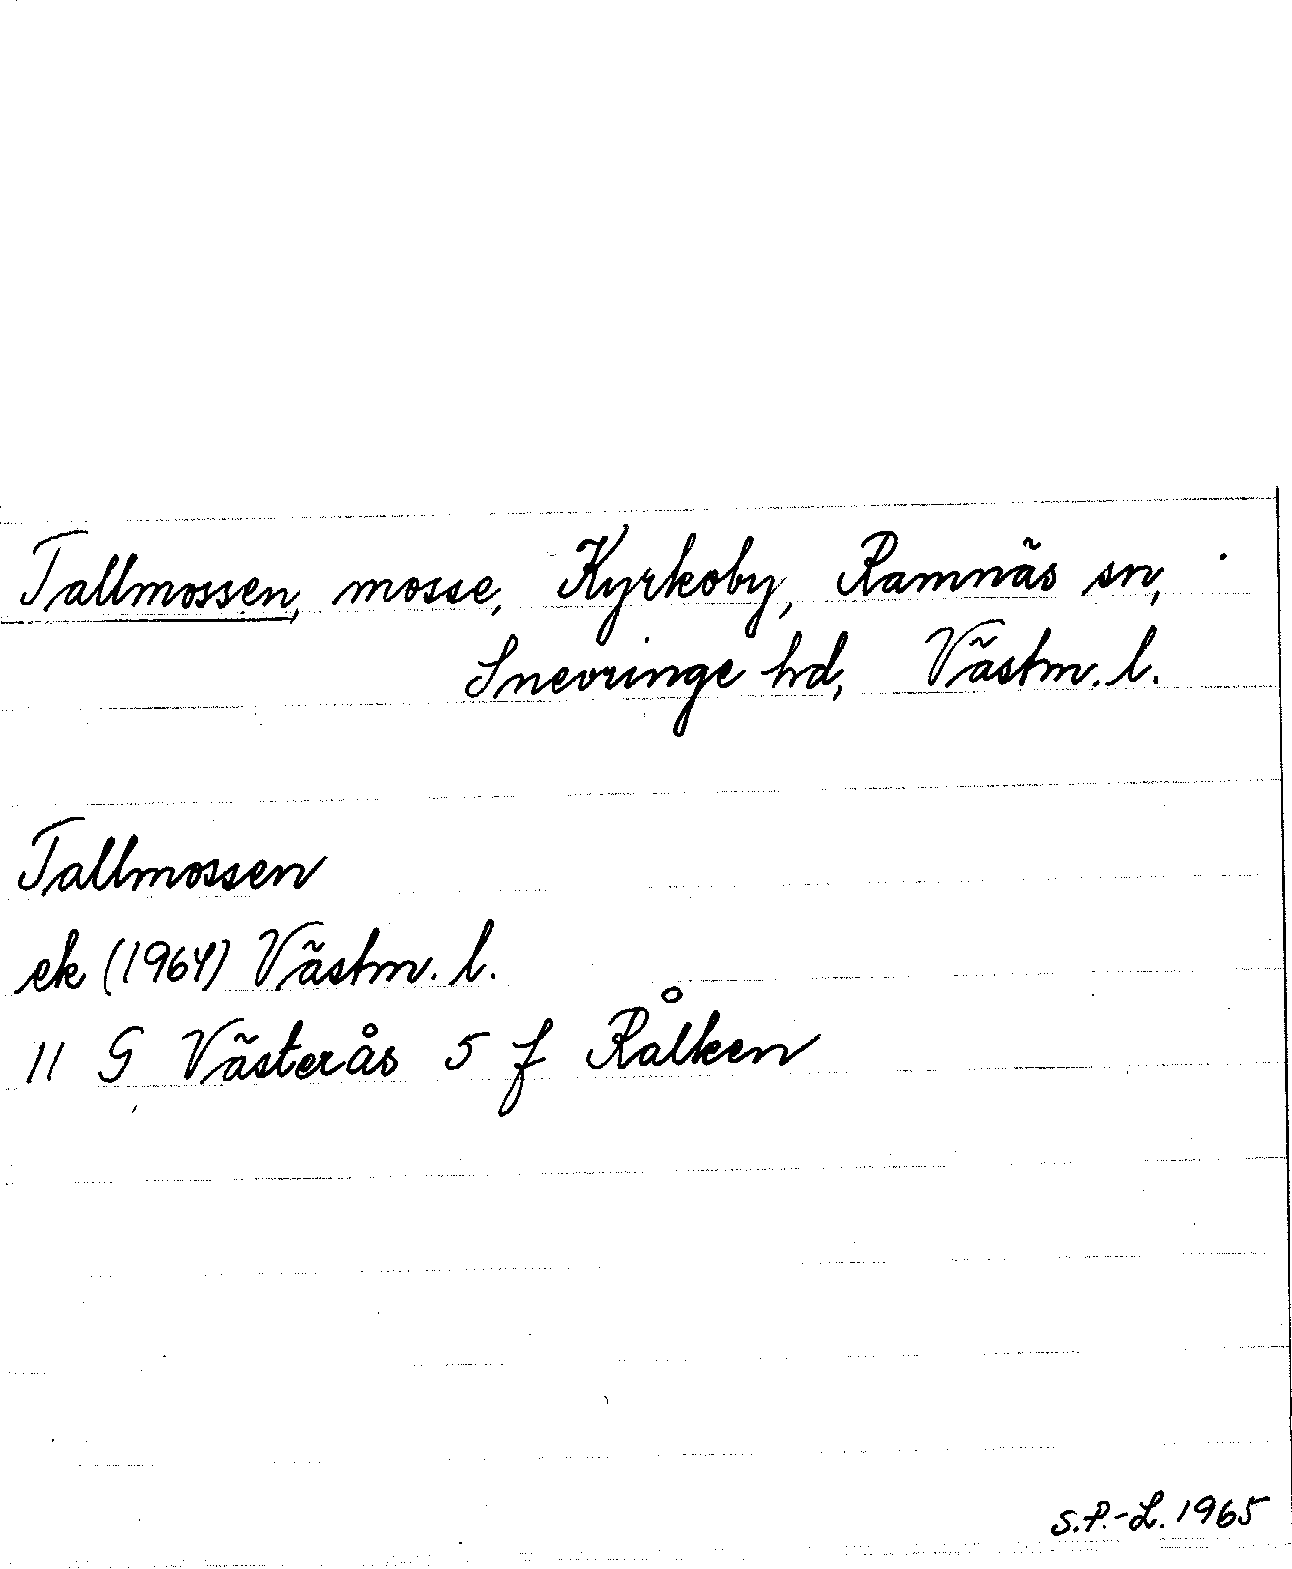 Tallmossen, mosse, Kyrkoby, Ramnäs sn,
Snevringe hd, Västm. l.
Tallmossen
ek (1964) Västm. l.
11 G Västerås 5 f Rålken
S.P.-L. 1965